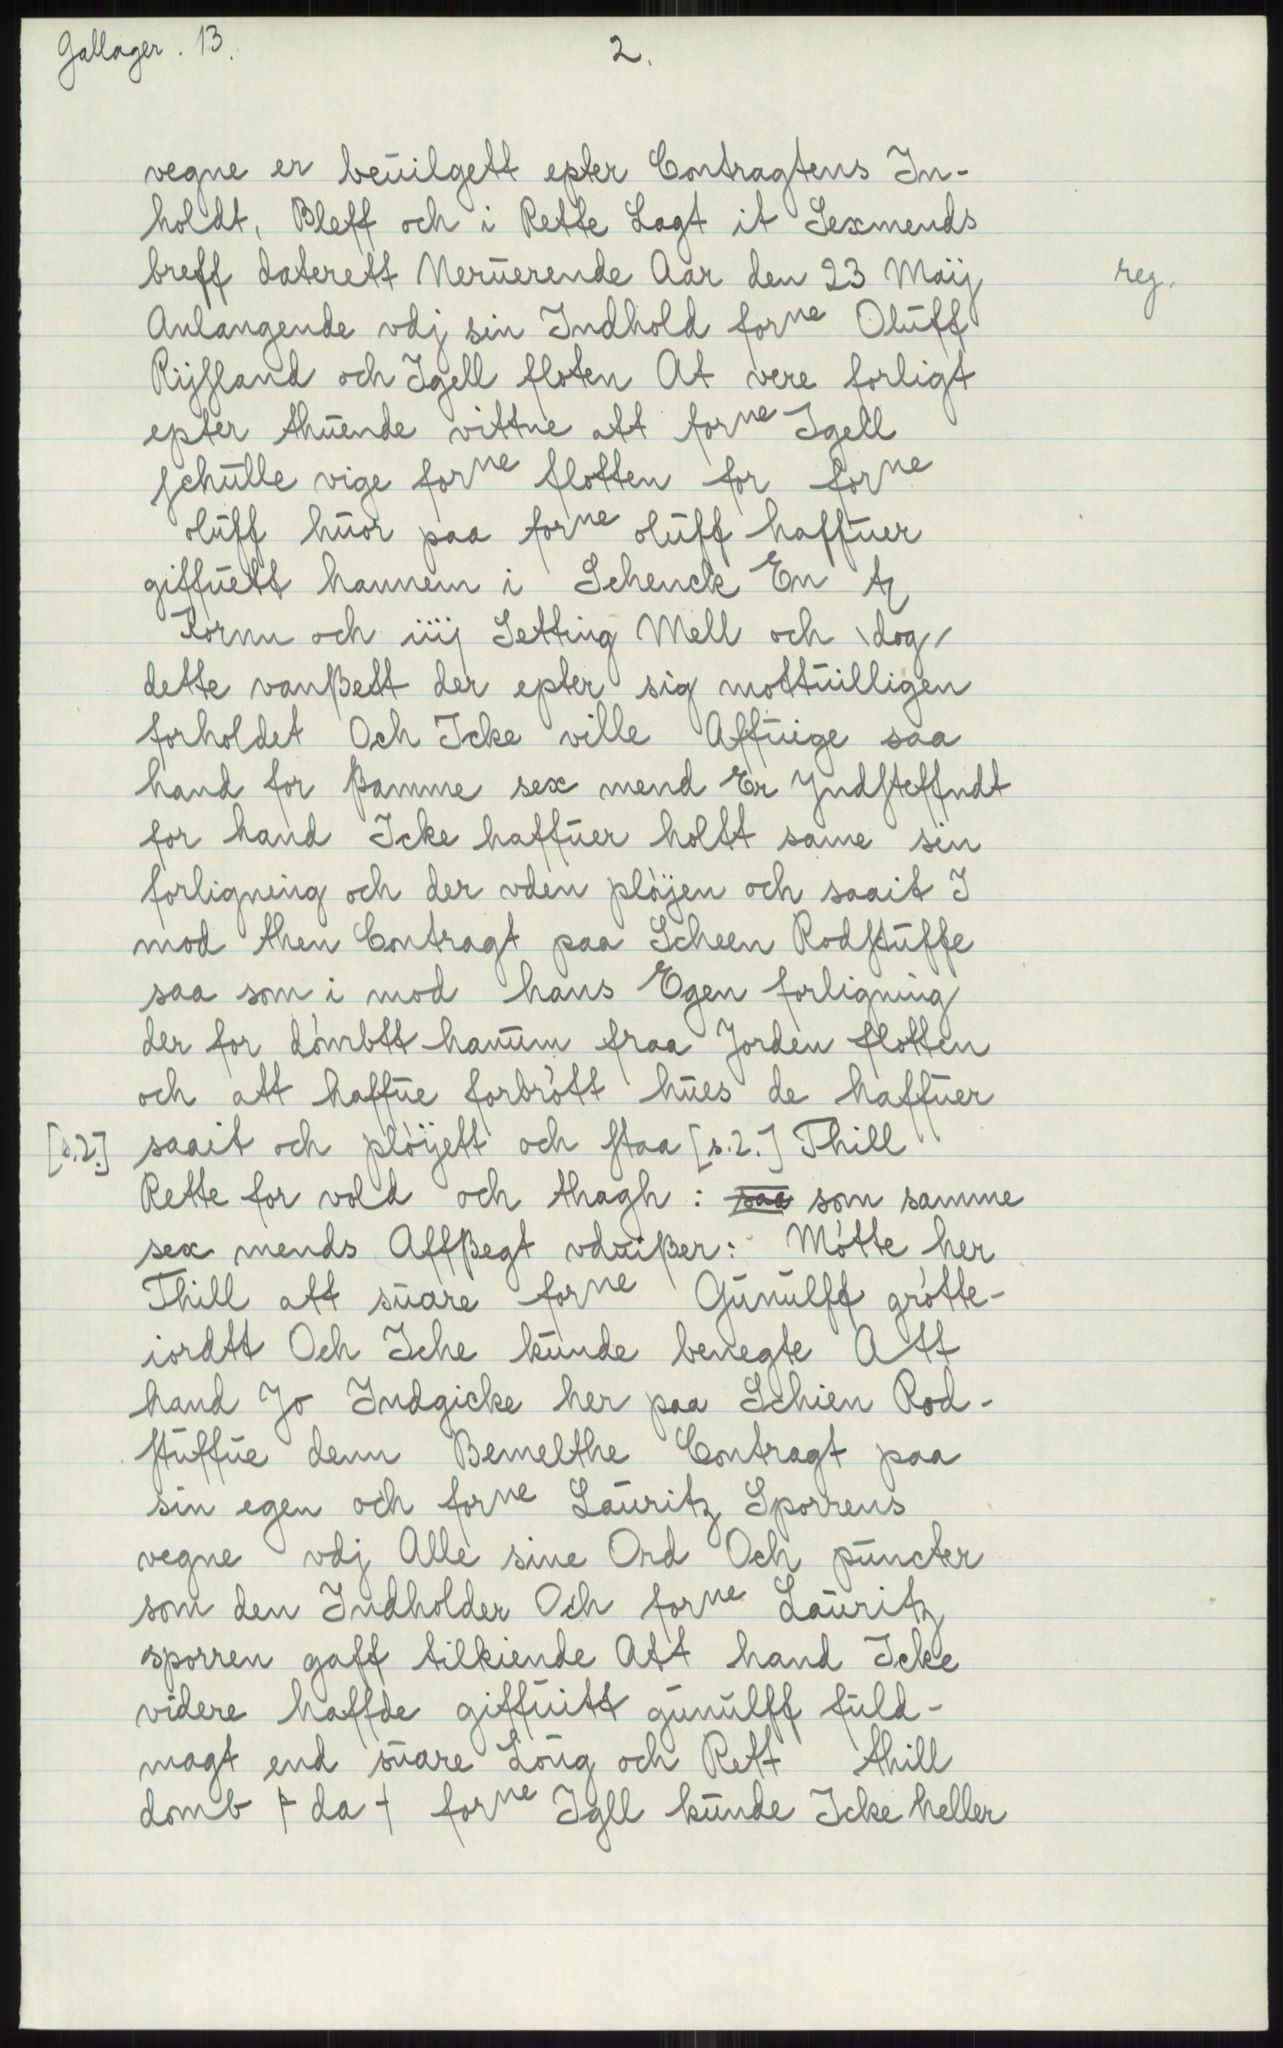 Gallager. 13.
2.
vegne er beuilgett epter Contragtens In-
holdt, Bleff och i Rette Lagt it Sexmends
breff daterett Neruerende Aar den 23 Maij
reg.
Anlangende vdj sin Indhold forne Oluff
Rijsland och Igell floten At vere forligt
epter thuende vittne att forne Igell
schulle vige forne flotten for forne
oluff huor paa forne oluff haffuer
giffuett hannem i Schenck En tz
Kornn och iiij Setting Mell och \dog/
dette vanßett der epter sig mottuilligen
forholdet Och Icke ville Affuige saa
hand for ßamme sex mend Er Yndsteffndt
for hand Icke haffuer holtt same sin
forligning och der vden pløyen och saait I
mod then Contragt paa Scheen Rodstuffe
saa som i mod hans Egen forligning
der for dømbtt hanum fraa Jorden flotten
och att haffue forbrøtt hues de haffuer
[s.2.] saait och pløyett och staa [s.2.] Thill
Rette for vold och thagh: saa som samme
sex mends Affßegt vduißer: Møtte her
Thill att suare forne Gunulff grøtte-
iordtt Och Iche kunde benegte Att
hand Jo Indgicke her paa Schien Rod-
stuffue denn Bemelthe Contragt paa
sin egen och forne Lauritz Sporrens
vegne vdj Alle sine Ord Och puncter
som den Indholder Och forne Lauritz
sporren gaff tilkiende Att hand Icke
videre haffde giffuitt gunulff fuld-
magt end suare Loug och Rett thill
domb ⊦ da ⊣ forne Igll kunde Icke heller